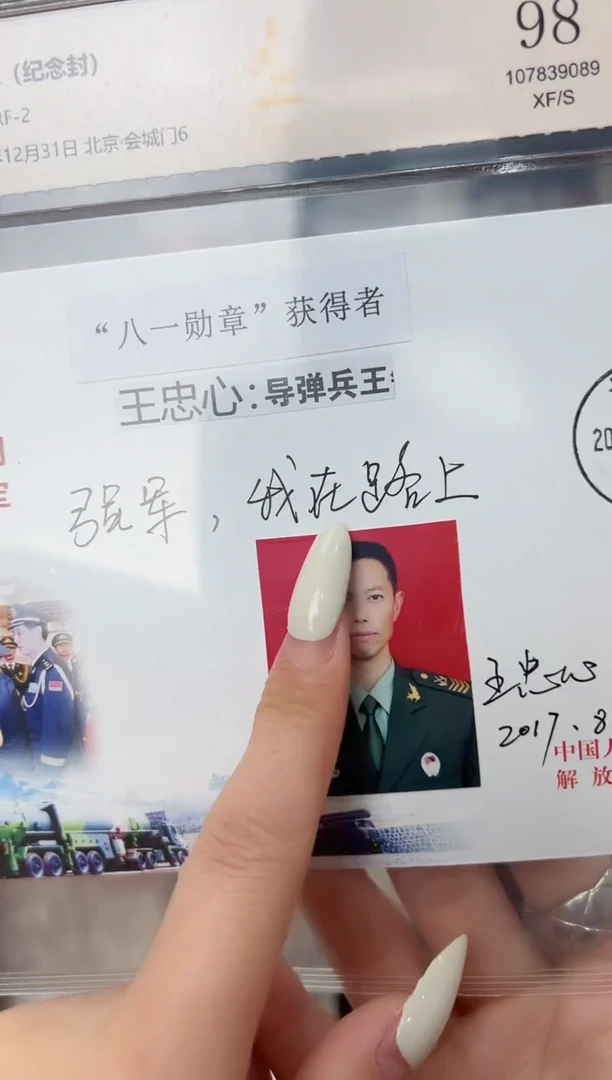 (纪念封)
98
107839089
XF/S
RF-2
12月31日 北京·会城门6
“八一勋章”获得者
王忠心:导弹兵王
强军,我在路上
王忠心
2017.8
中国人
解放
20